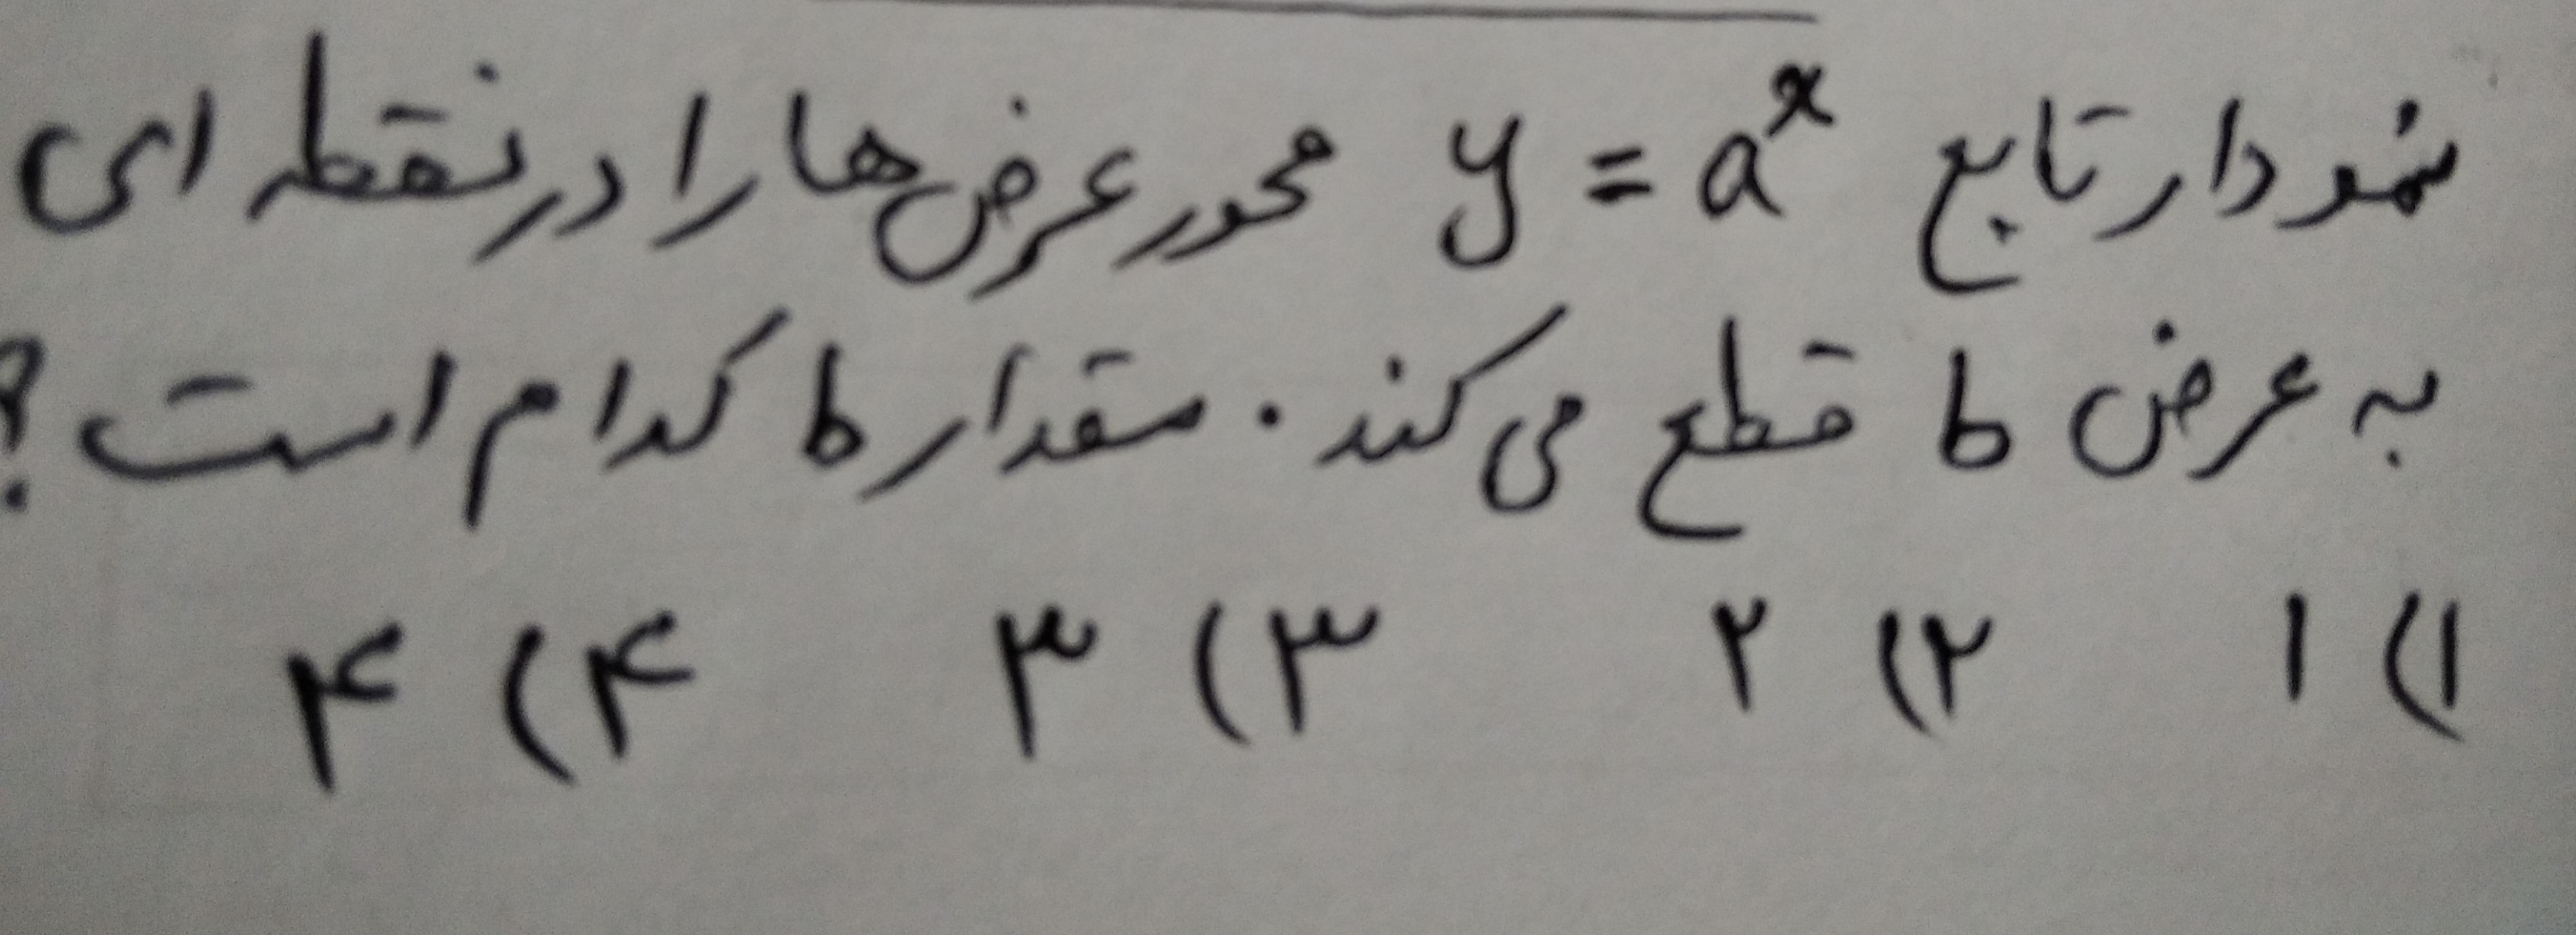 نمودار تابع y = a^x محور عرض‌ها را در نقطه ای
به عرض b قطع می‌کند. مقدار b کدام است؟
۱) ۱ ۲) ۲ ۳) ۳ ۴) ۴